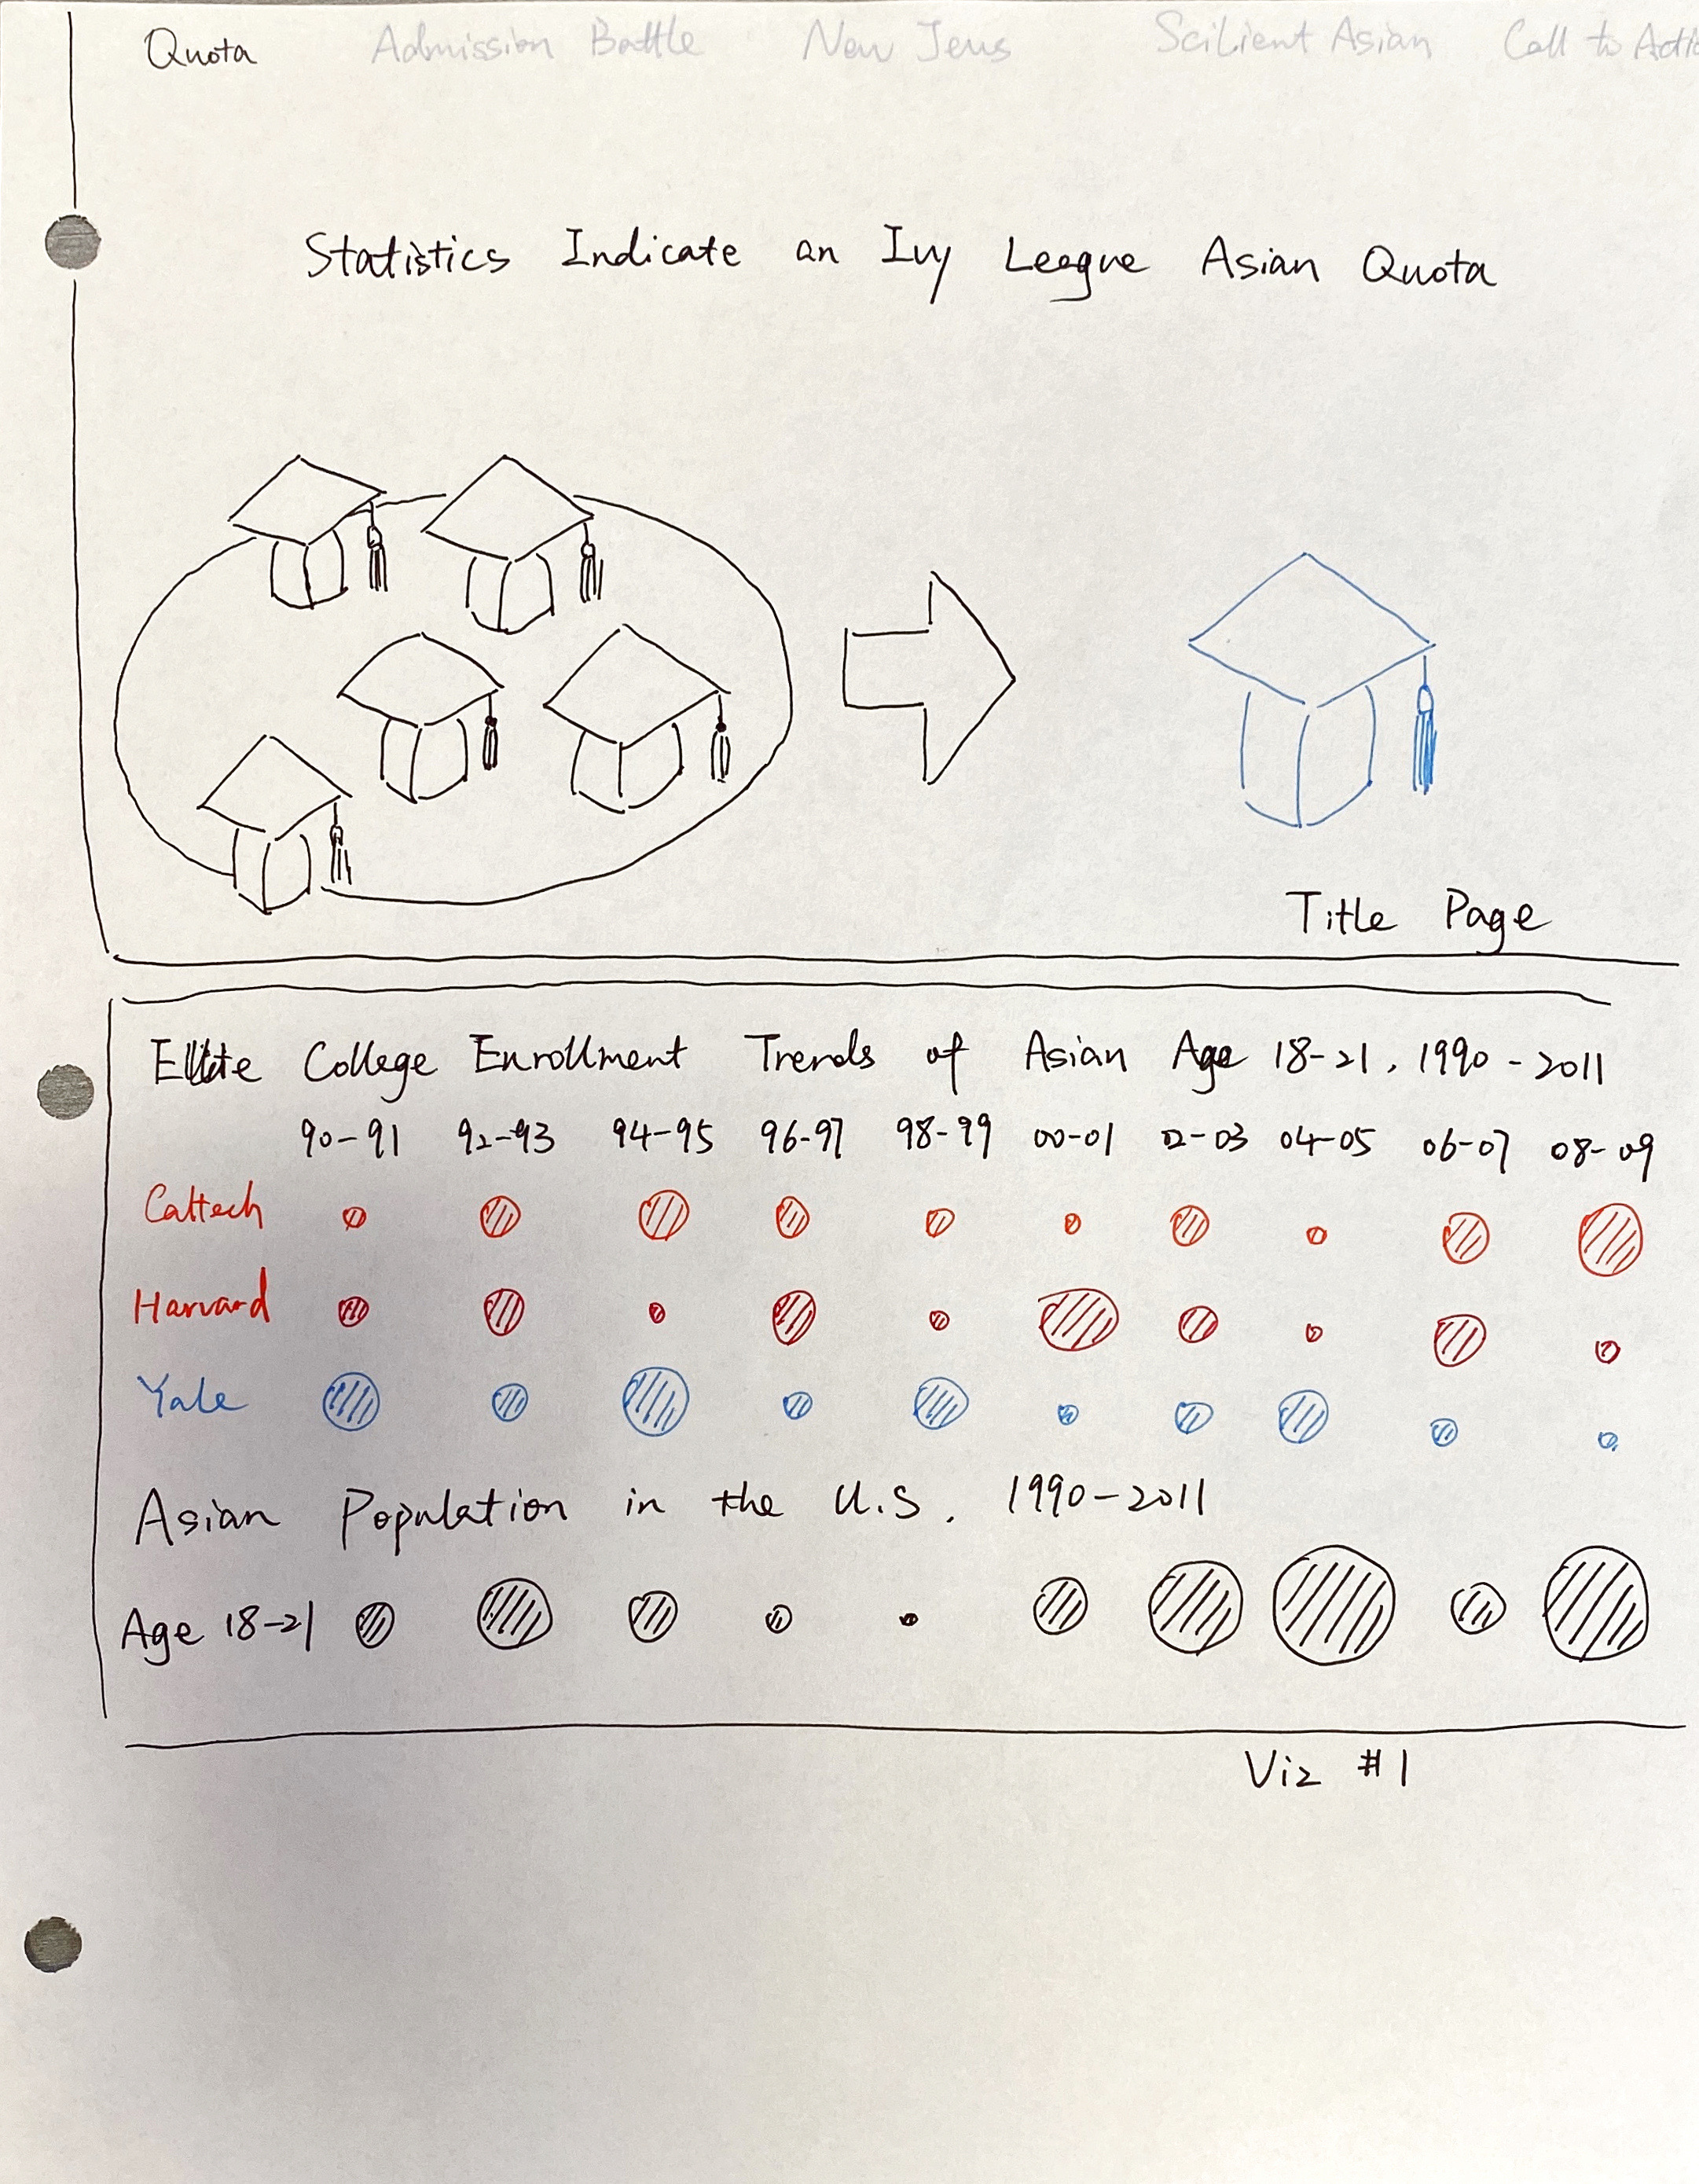 Quota Admission Battle New Jews Scilient Asian Call to Actio
Statistics Indicate an Ivy League Asian Quota
Title Page
Elite College Enrollment Trends of Asian Age 18-21, 1990-2011
90-91 92-93 94-95 96-97 98-99 00-01 02-03 04-05 06-07 08-09
Caltech
Harvard
Yale
Asian Population in the U.S. 1990-2011
Age 18-21
Viz #1